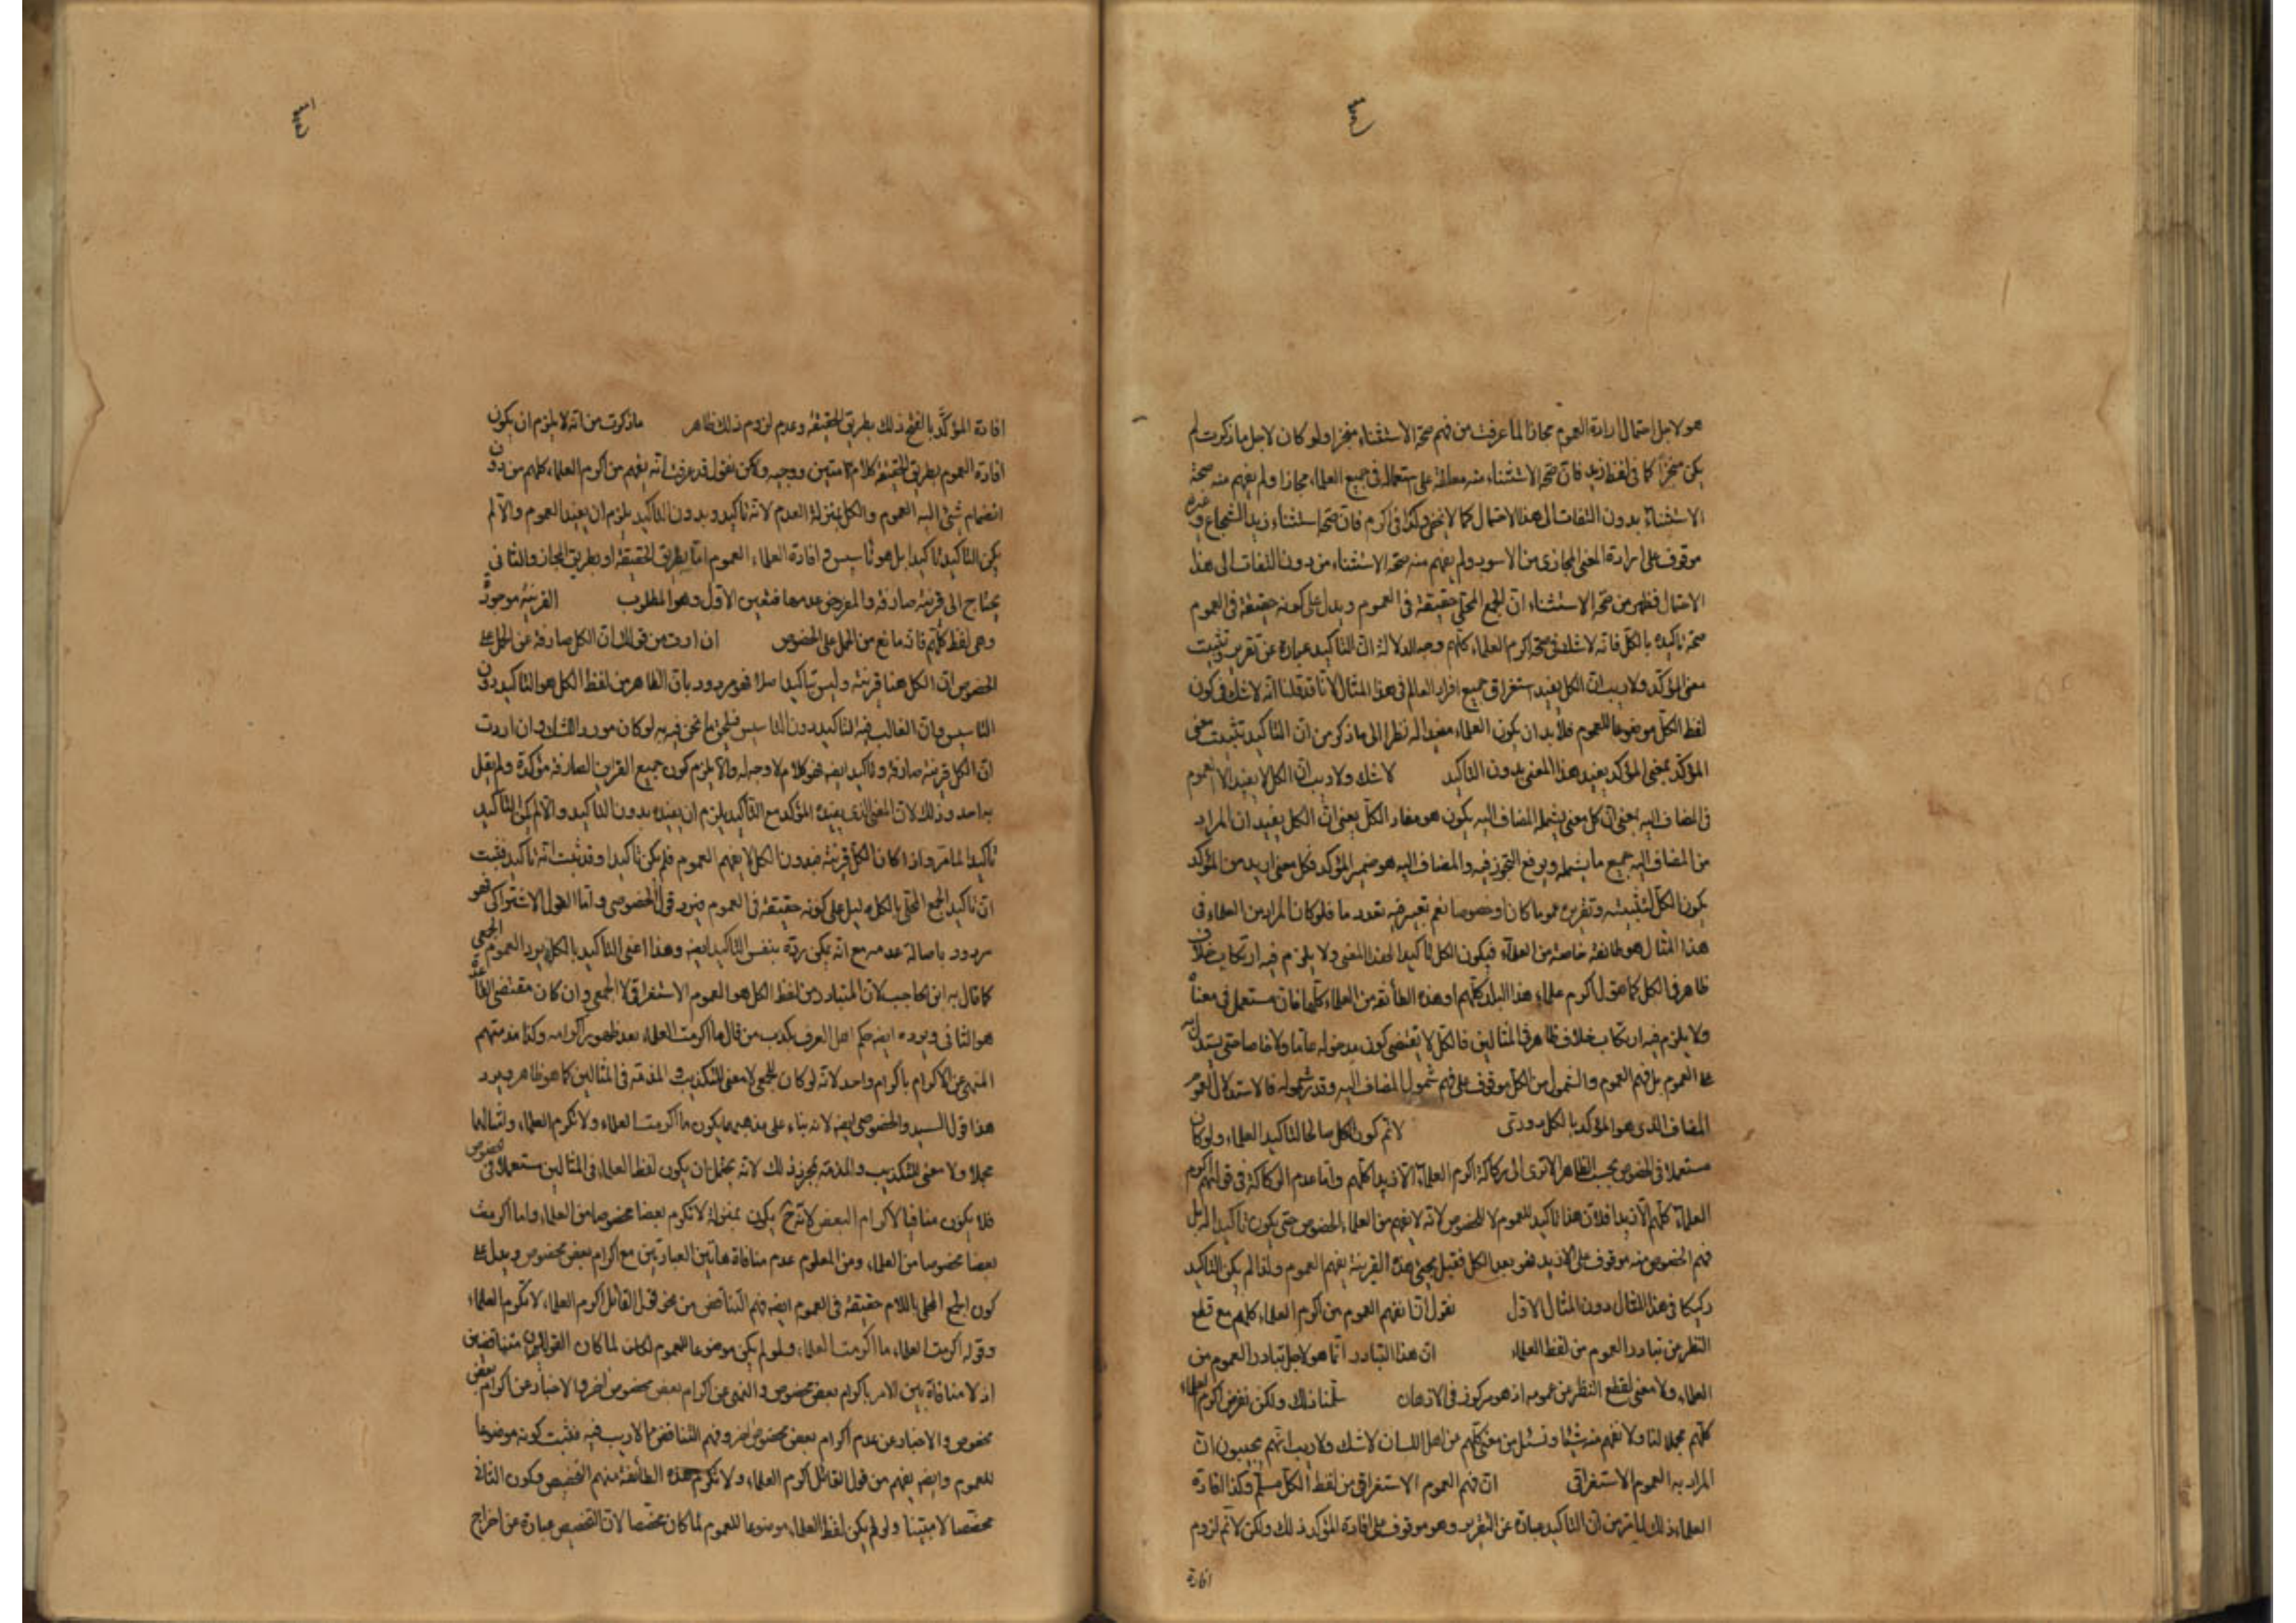 هو لاجل احتمال ارادة العموم مجازا لما عرفت من فهم صحة الاستثناء منجزا ولو كان لاجل ما ذكرت لم
يكن منجزا كما فى لفظ زيد فان صحة الاستثناء منه معلقة على استعماله فى جميع العلماء مجازا ولم يفهم منه صحة
الاستثناء بدون التفات الى هذا الاحتمال كما لا يخفى وكذا فى اكرم فان صحة استثناء زيد الشجاع وغيره
موقوف على ارادة المعنى المجازى من الاسود ولم يفهم منه صحة الاستثناء من دون التفات الى هذا
الاحتمال فظهر من صحة الاستثناء ان الجمع المحلى حقيقة فى العموم ويدل على كونه حقيقة فى العموم
صحة تاكيده بالكل فانه لا شك فى صحة اكرم العلماء كلهم وجه الدلالة ان التاكيد عبارة عن تقرير وتثبيت
معنى المؤكد ولا ريب ان الكل يفيد استغراق جميع افراد العالم فى هذا المثال لانا قد قلنا انه لا شك فى كون
لفظ الكل موضوعا للعموم فلا بد ان يكون العلماء مفيدا له نظرا الى ما ذكر من ان التاكيد تثبيت معنى
المؤكد بمعنى المؤكد يفيد هذا المعنى بدون التاكيد لا شك ولا ريب ان الكل لا يفيد الا العموم
فى المضاف اليه بمعنى ان كل معنى يشمله المضاف اليه يكون هو مفاد الكل يعنى ان الكل يفيد ان المراد
من المضاف اليه جميع ما يشمله ويرفع التجوز فيه والمضاف اليه هو ضمير المؤكد فكل معنى اريد من المؤكد
يكون الكل لتثبيته وتقريره عموما كان او خصوصا نعم تعبر فيه تعدد ما فلو كان المراد من العلماء فى
هذا المثال هو طائفة خاصة من العلماء فيكون الكل تاكيدا لهذا المعنى ولا يلزم فيه ارتكاب خلاف
ظاهر فى الكل كما تقول اكرم علماء هذا البلد كلهم او هذه الطائفة من العلماء كلها فان مستعمل فى معناه
ولا يلزم فيه ارتكاب خلاف ظاهر فى المثالين فالكل لا يقتضى كون مدخوله عاما ولا خاصا حتى يستدل به
على العموم بل فهم العموم والشمول من الكل موقوف على فهم شمول المضاف اليه وقدر شموله فالاستدلال لعموم
المضاف الذى هو المؤكد بالكل دورى لا نم كون الكل صالحا لتاكيد العلماء ولو كان
مستعملا فى الخصوص بحسب الظاهر الا ترى الى ركاكة اكرم العلماء الا زيدا كلهم واما عدم الركاكة فى قولهم اكرم
العلماء كلهم الا زيدا فلان هنا تاكيد للعموم لا للخصوص لانه لا يفهم من العلماء الخصوص حتى يكون تاكيدا له بل
فهم الخصوص منه موقوف على الا زيد فهو بعد الكل فقبل مجئ هذه القرينة يفهم العموم ولذا لم يكن التاكيد
ركيكا فى هذا المثال دون المثال الاول نقول انا نفهم العموم من اكرم العلماء كلهم مع قطع
النظر من تبادر العموم من لفظ العلماء ان هذا التبادر انما هو لاجل تبادر العموم من
العلماء ولا معنى لقطع النظر من عمومه اذ هو مركوز فى الاذهان سلمنا ذلك ولكن نفرض اكرم العلماء
كلهم مجملا لنا ولا نفهم منه شيئا ونسئل من معنى كلهم من اهل اللسان لا شك ولا ريب انهم يجيبون ان
المراد به العموم الاستغراقى ان فهم العموم الاستغراقى من لفظ الكل مسلم وكذا افادة
العلماء ذلك لما تر من ان التاكيد عبارة عن التقرير وهو موقوف على افادة المؤكد ذلك ولكن لا نم لزوم
افادة
افادة المؤكد بالفتح ذلك بطريق الحقيقة وعدم لزوم ذلك ظاهر ما ذكرت من انه لا يلزم ان يكون
افادة العموم بطريق الحقيقة كلام متين ووجيه ولكن نقول قد عرفت انه يفهم من اكرم العلماء كلهم من دون
انضمام شئ اليه العموم والكل بمنزلة العدم لانه تاكيد وبدون التاكيد يلزم ان يفيد العموم والا لم
يكن التاكيد تاكيدا بل هو تاسيس وافادة العلماء العموم اما بطريق الحقيقة او بطريق المجاز والثانى
يحتاج الى قرينة صارفة والمفروض عدمها فتعين الاول وهو المطلوب القرينة موجودة
وهى لفظ كلهم فانه مانع من الحمل على الخصوص ان اردت من قولك ان الكل صارفة عن الحمل على
الخصوص ان الكل هنا قرينة وليس تاكيدا اصلا فهو مردود بان الظاهر من لفظ الكل هو التاكيد دون
التاسيس وبان الغالب فيه التاكيد دون التاسيس فيلحق ما نحن فيه به لو كان مورد الشك وان اردت
ان الكل قرينة صارفة وتاكيد ايضه فهو كلام لا وجه له والا يلزم كون جميع القراين الصارفة مؤكدة ولم يقل
به احد وذلك لان المعنى الذى يفيده المؤكد مع التاكيد يلزم ان يفيده بدون التاكيد والا لم يكن التاكيد
تاكيدا لما مر واذا كان الكل قرينة فبدون الكل لا يفهم العموم فلم يكن تاكيدا وقد ثبت انه تاكيد فثبت
ان تاكيد الجمع المحلى بالكل دليل على كونه حقيقة فى العموم فيرد قول الخصوصى واما القول الاشتراكى فهو
مردود باصالة عدمه مع انه يمكن رده بنفس التاكيد ايضه وهذا اعنى التاكيد بالكل يرد العموم الجمعى
كما قال به ابن الحاجب لان المتبادر من لفظ الكل هو العموم الاستغراقى لا الجمعى وان كان مقتضى القاعدة
هو الثانى ويرده ايضه حكم اهل العرف بكذب من قال ما اكرمت العلماء بعد ظهور اكرامه وكذا مذمتهم
المنهى عن الاكرام باكرام واحد لانه لو كان للجمعى لا معنى للتكذيب والمذمة فى المثالين كما هو ظاهر ويرد
هذا قول السيد والخصوصى ايضه لانه بناء على مذهبهما يكون ما اكرمت العلماء ولا تكرم العلماء وامثالهما
مجملا ولا معنى للتكذيب والمذمة بمجرد ذلك لانه يحتمل ان يكون لفظ العلماء فى المثالين مستعملا فى الخصوص
فلا يكون منافيا لاكرام البعض لانه ح يكون بمنزلة لا تكرم بعضا مخصوصا من العلماء واما اكرمت
بعضا مخصوصا من العلماء ومن المعلوم عدم منافاة هاتين العبارتين مع اكرام بعض مخصوص ويدل على
كون الجمع المحلى باللام حقيقة فى العموم ايضه فهم التناقض من نحو قول القائل اكرم العلماء لا تكرم العلماء
وقوله اكرمت العلماء ما اكرمت العلماء ولو لم يكن موضوعا للعموم لكان لما كان القولان متناقضين
اذ لا منافاة بين الامر باكرام بعض مخصوص والنهى عن اكرام بعض مخصوص اخر والاخبار عن اكرام بعض
مخصوص والاخبار عن عدم اكرام بعض مخصوص اخر وفهم التناقض مما لا ريب فيه فثبت كونه موضوعا
للعموم وايضه يفهم من قول القائل اكرم العلماء ولا تكرم هذه الطائفة منهم التخصيص وكون الثانى
مخصصا لا مبينا ولو لم يكن لفظ العلماء موضوعا للعموم لما كان مخصصا لان التخصيص عبارة عن اخراج